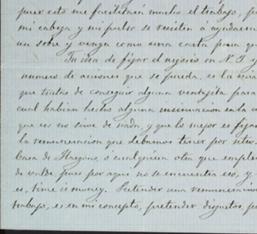 pues esto me facilitará mucho el trabajo, p
mi cabeza y mi pulso se resisten á ayudarme
un setre y venga como una carta para que
Tu idea de fijar el negocio en N. Y. y
numero de acciones que se pueda, es la única
que trates de conseguir alguna ventajita para
cual habian hecho alguna insinuacion en la c
que eso no sirve de nada, y que lo mejor es fijar
la remuneracion que debamos tener por
Casa de ó cualquiera otra que emplee
de venta pues por aqui no se encuentra eso, y
es, time is money. Pretender una remuneracion
trabajo, es en mi concepto, pretender disgustos pa